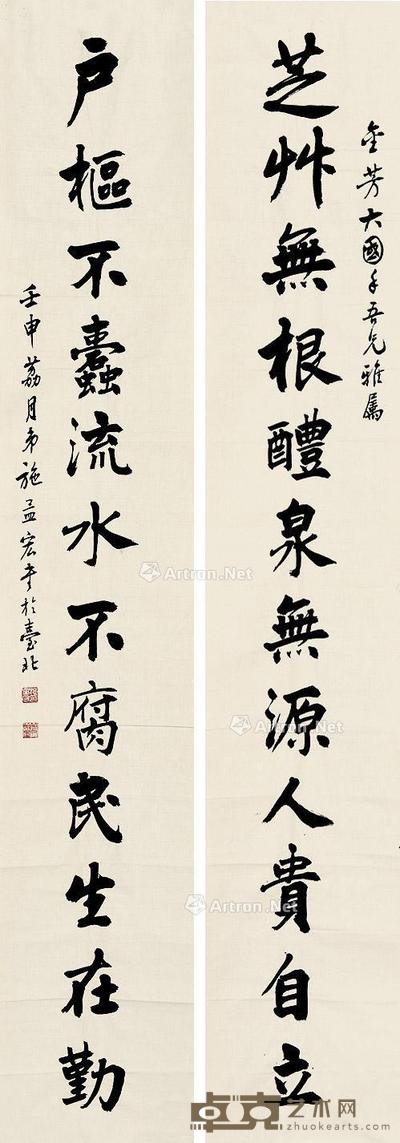 芝艸無根醴泉無源人貴自立
金芳大國手吾兄雅屬
户樞不蠹流水不腐民生在勤
壬申荔月弟施孟宏書於臺北
Artron.Net
Artron.Net
Artron.Net
卓克艺术网
zhuokearts.com